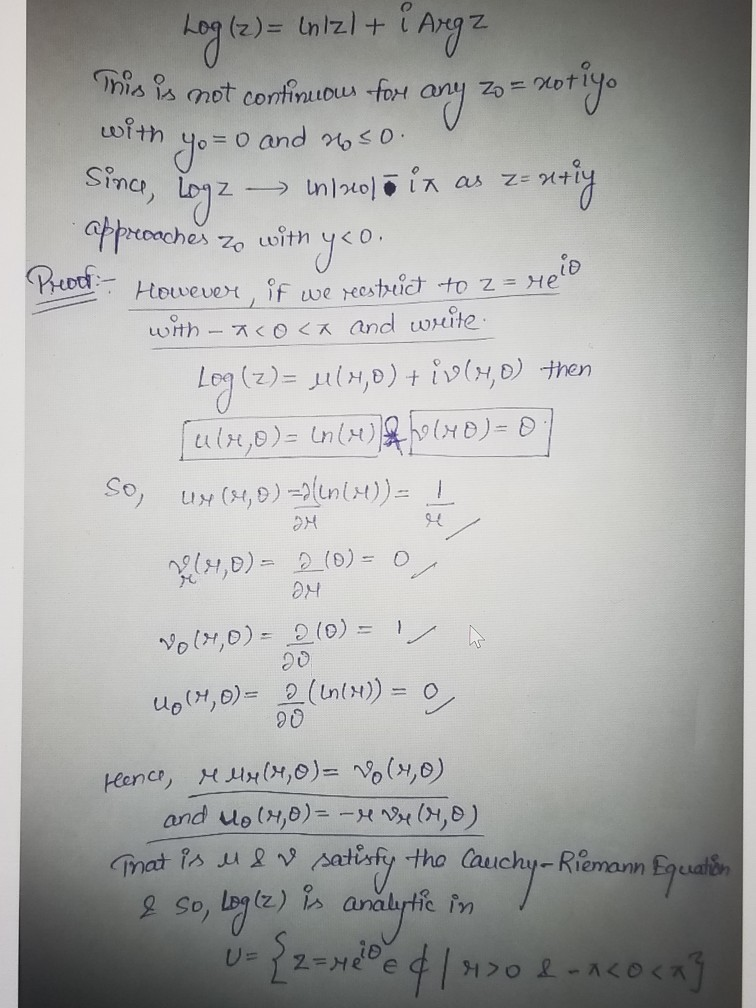 Log(z) = ln|z| + i Arg z
This is not continuous for any z₀ = x₀+iy₀
with y₀ = 0 and x₀ ≤ 0.
Since, Log z → ln|x₀| - iπ as z = x+iy
approaches z₀ with y<0.
Proof:- However, if we restrict to z = re^{iθ}
with -π<θ<π and write.
Log(z) = u(r,θ) + iv(r,θ) then
u(r,θ) = ln(r) & v(rθ) = θ
So, u_r(r,θ) = ∂/∂r (ln(r)) = 1/r
v_r(r,θ) = ∂/∂r (θ) = 0
v_θ(r,θ) = ∂/∂θ (θ) = 1
u_θ(r,θ) = ∂/∂θ (ln(r)) = 0
Hence, r u_r(r,θ) = v_θ(r,θ)
and u_θ(r,θ) = -r v_r(r,θ)
That is u & v satisfy the Cauchy-Riemann Equation
& So, Log(z) is analytic in
U = {z = re^{iθ} ∈ ℂ | r>0 & -π<θ<π}